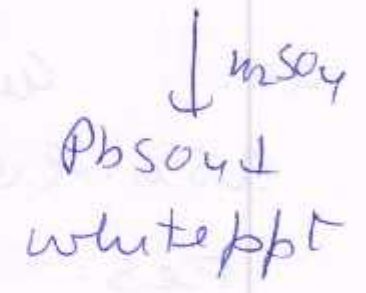 ↓ H2SO4
PbSO4↓
white ppt